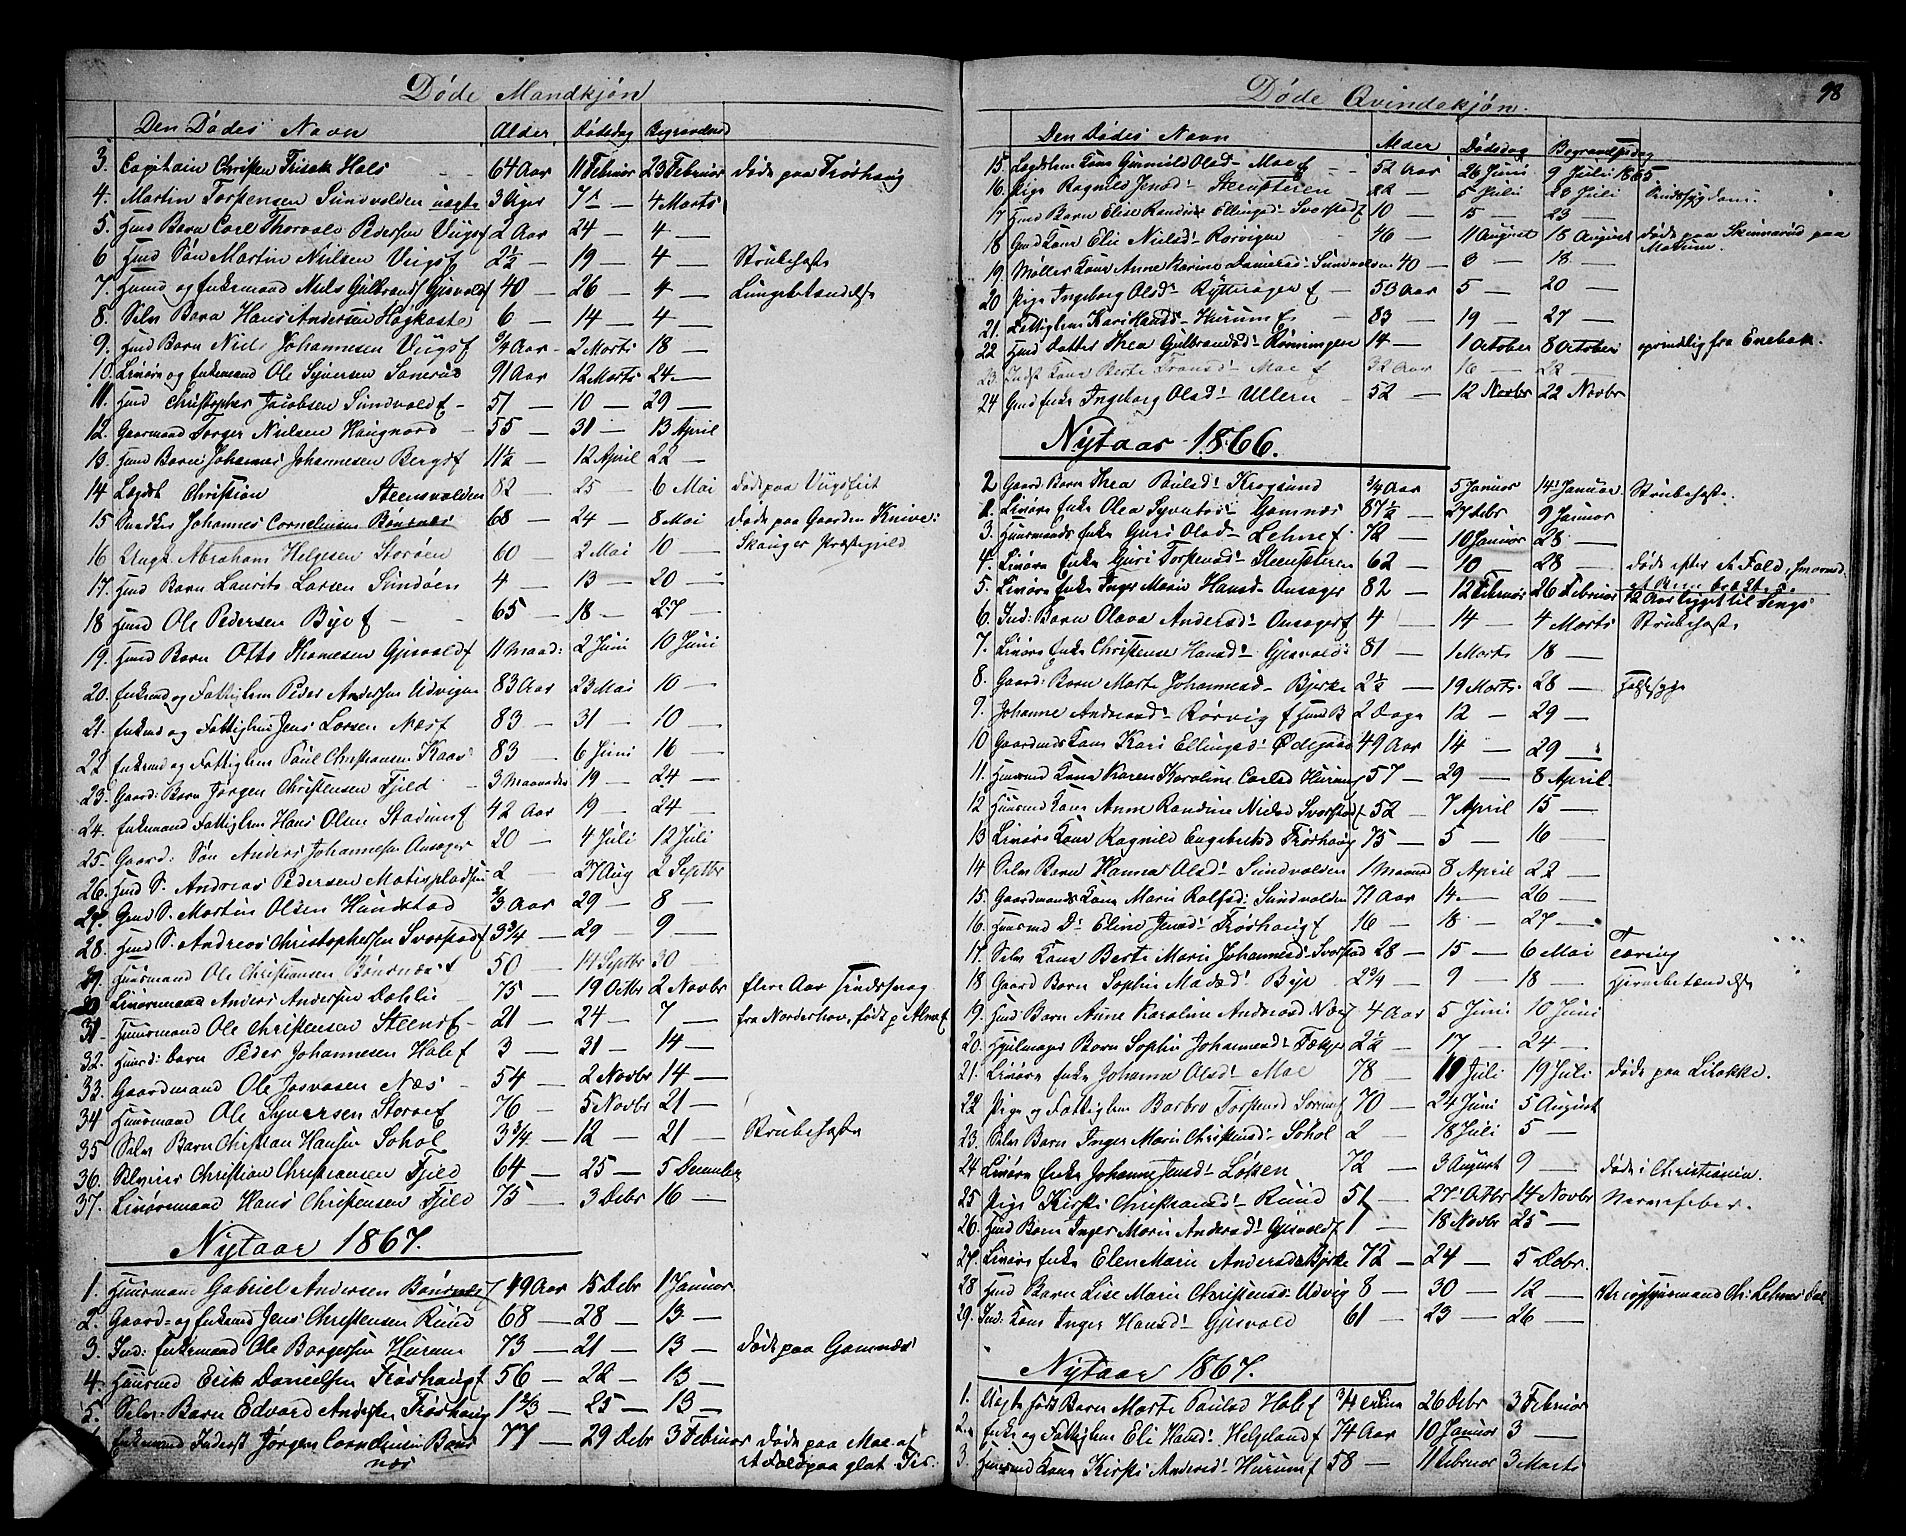 Døde Mandkjøn
Den Dødes Navn Alder Dødsdag Begravelsed
3. Capitain Christen Frisak Hals 64 Aar 11 Februar 23 Februar døde paa Frøshaug
4. Martin Torstensen Sundvolden uægte 3 Uger 7 — 4 Marts
5. Huusd Barn Carl Thorvald Pedersen Viigsf 2 Aar 24 — 4 —
6 Husd Søn Martin Nielsen Viigsf 2½ — 19 — 4 — Strubehoste
7. Husmd og Enkemand Niels Gulbrands Gjesvoldf 40 — 26 — 4 — Lungebetændelse
8. Selv Barn Hans Andersen Høgkaste 6 — 14 — 4 —
9. Husd Barn Niel Johannesen Viigsf ¾ Aar 2 Marts 18 —
10. Linøre og Enkemand Ole Syversen Sonerud 91 Aar 12 Marts 24 —
11. Husd Christopher Jacobsen Sundvoldf 51 — 10 — 29 —
12. Gaarmand Torger Nielsen Haugnord 55 — 31 — 13 April
13. Husd Barn Johannes Johannesen Bergsf 11½ — 12 April 22 —
14 Logdst Christian Steensvolden 82 — 25 — 6 Mai døde paa Viigseiet
15 Snedker Johannes Corneliusen Bønsnæs 68 — 24 — 8 Mai døde paa Gaarden Knive
16 Ungk. Abraham Helgesen Storøen 60 — 2 Mai 10 — Skouger Præstegield
17. Husd Barn Laurits Larsen Sundøen 4 — 13 — 20 —
18 Husmd Ole Pedersen Byef 65 — 18 — 27 —
19. Husd Barn Otto Thomesen Gjesvoldf 11 Maad: 2 Juni 10 Juni
20. Enkemd og Fattiglem Peder Andersen Udvigen 83 Aar 23 Mai 10 —
21. Enkemd og Fattiglem Jens Larsen Næsf 83 — 31 — 10 —
22 Enkemd og Fattiglem Paul Christiansen Kaas 83 — 6 Juni 16 —
23. Gaard: Barn Jørgen Christensen Fjeld 3 Maaneder 19 — 24 —
24. Enkemand Fattiglem Hans Olsen Stadumsf 42 Aar 19 — 24 —
25. Gaard: Søn Anders Johannesen Onsager 20 — 4 Juli 12 Juli
26. Husd S. Andreas Pedersen Matispladsen 2 — 27 Aug 2 Septbr
27. Gmd S. Martin Olsen Hundstad ⅔ Aar 29 — 8 —
28. Husd S. Andreas Christophersen Svarstadf 3¾ — 29 — 9 —
29. Huusmand Ole Christiansen Bønsnæsf 50 — 14 Septbr 30 —
30 Linøremand Anders Andersen Dahlie 75 — 19 Octbr 2 Novbr flere Aar Sindssvag
31 Huusmand Ole Christensen Steensf 21 — 24 — 7 — fra Norderhov, født p. Almef
32. Huusd: barn Peder Johannesen Holef 3 — 31 — 14 —
33. Gaardmand Ole Josvasen Næs 54 — 2 Novbr 14 —
34 Huusmand Ole Syversen Storøef 76 — 5 Novbr 21 —
35 Selv Barn Christian Hansen Sohol 3¾ — 12 — 21 — Strubehoste
36. Selveier Christian Christiansen Fjeld 64 — 25 — 5 December
37. Linøremand Hans Christensen Fjeld 75 — 3 Debr 16 —
Nytaar 1867.
1. Huusmand Gabriel Andersen Bønsnæsf 49 Aar 15 Debr 1 Januar
2. Gaard- og Enkemd Jens Christensen Rund 68 — 28 — 13 —
3. Ind: Enkemand Ole Borgersen Hurum 73 — 21 — 13 — døde paa Gomnæs
4. Huusmd Erik Danielsen Frøshaugf 56 — 22 — 13 —
5. Selv: Barn Edvard Andersen Frøshaug 1⅔ — 25 — 13 —
Enkemand Inderst Jørgen Corneliusen Bøns 77 — 29 Debr 3 Februar døde paa Moe af
næs et Fald paa glat Iis.
Døde Qvindekjøn. 98
Den Dødes Navn Alder Dødsdag Begravelsesdag
15. Logdslem Kone Gunnild Olsd Moef 52 Aar 26 Juni 9 Juli 1865
16. Pige Ragnild Jensd Steensteren 22 — 5 Juli 20 Juli Sindssygdom.
17 Husd Barn Elise Randine Ellingsd Svarstadf 10 — 15 — 23 —
18 Gmd Kone Elie Nielsd Rørvigen 46 — 11 August 18 August døde paa Skinnerud paa
Modum.
19 Møller Kone Anne Karine Danielsd Sundvolden 40 — 3 — 18 —
20 Pige Ingeborg Olsd Rytteragerf 53 Aar 5 — 20 —
21. Fattiglem Kari Hansd Hurumf 83 — 19 — 27 —
22 Husd Datter Thea Gulbrandsd Rønningen 14 — 1 October 8 October oprindelig fra Enebak.
23. Indst Kone Berte Fransd Moef 32 Aar 16 — 22 —
24 Gmd Enke Ingeborg Olsd Ullern 52 — 12 Novbr 22 Novbr
Nytaar 1866.
2 Gaard: Barn Thea Paulsd Krogsund ¾ Aar 5 Januar 14 Januar Strubehoste.
1. Linøre Enke Olea Syvertsd Gomnæs 87½ — 27 Debr 9 Januar
3. Huusmands Enke Guri Olsd Lehnef 72 — 10 Januar 28 —
4. Linøre Enke Guri Torstensd Steensteren 62 — 10 — 28 — døde efter et Fald, hvorved
et Been brækkedes
5. Linøre Enke Inger Marie Hansd Onsager 82 — 12 Februar 26 Februar 12 Aar ligget til Sengs
6. Ind: Barn Olava Andersd Onsagerf 4 — 14 — 4 Marts Strubehoste
7. Linøre Enke Christense Hansd Gjesvold 81 — 1 Marts 18 —
8. Gaard: Barn Marte Johannesd Bjerke 2½ — 19 Marts 28 —
9. Johanne Andreasd Rørvigf Husd B 2 Dage 12 — 29 —
10 Gaardmds Kone Kari Ellingsd Ødegaard 49 Aar 14 — 29 —
11. Huusmd Kone Karen Karoline Carlsd Hurumf 57 — 29 — 8 April.
12 Huusmd Kone Anne Randine Nielsd Svarstadf 52 — 7 April 15 —
13 Linøre Kone Ragnild Engebretsd Frøshaug 75 — 5 — 16 —
14 Selv Barn Hanna Olsd Sundvolden 1 Maaned 8 April 22 —
15. Gaardmands Kone Marie Rolfsd: Sundvolden 71 Aar 14 — 26 —
16. Huusmd D: Eline Jensd Frøshaugf 16 — 18 — 27 —
17. Selv Kone Berte Marie Johannesd Svarstad 28 — 15 — 6 Mai Tæring
18 Gaard Barn Sophie Madsd Bye 2¾ — 9 — 18 — Hjernebetændelse
19. Husd Barn Anne Karoline Andersd Næsf 4 Aar 5 Juni 10 Juni
20. Hjulmager Barn Sophie Johannesd Fækjer 2½ — 17 — 24 —
21. Linøre Enke Johanna Olsd Moe 78 — 10 Juli 19 Juli døde paa Lilokke.
22 Pige og Fattiglem Barbro Torstensd Sonerudf 70 — 24 Juni 5 August
23. Selv Barn Inger Marie Christiansd Sohol 2 — 18 Juli 5 —
24 Linøre Enke Johanne Jensd Løken 72 — 3 August 9 — døde i Christiania.
25 Pige Kirsti Christiansd Rund 51 — 27 Octbr 14 Novbr Nervefeber.
26. Husd Barn Inger Marie Andersd Gjesvoldf 1 — 18 Novbr 25 —
27. Linøre Enke Elen Marie Andersd Bjerke 72 — 24 — 5 Debr.
28 Husd Barn Lise Marie Christensd Udvig 8 — 30 — 12 —
29. Ind: Kone Inger Hansd Gjesvold 61 — 23 — 26 —
Nytaar 1867.
1. Uægte født Barn Marte Paulsd Holef ¾ 26 Debr 3 Februar
2. Enke og Fattiglem Eli Hansd Helgelandf 74 Aar 10 Januar 3 —
3. Huusmd Kone Kirsti Andersd Hurumf 58 — 11 Februar 3 Marts